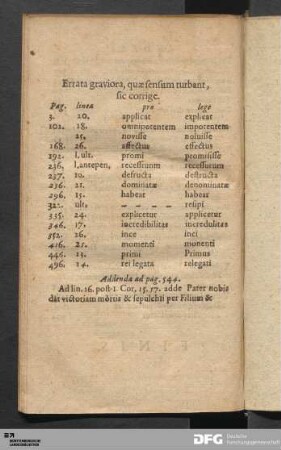 Errata graviora, quæ sensum turbant,
sic corrige.
Pag. linea pro lege
3. 20. applicat explicat
102. 18. omnipotentem impotentem
25. novisse noluisse
168. 26. affectus effectus
292. l. ult. promi promisisse
236, l, antepen, recessurum recessurum
237. 20. defructa destructa
236. 21. dominatæ denominatæ
296. 15. habeat habeat
322. ult. resipi
335. 24. explicetur applicetur
346. 17. incredibilitas incredulitas
352. 26. ince inci
416. 21. momenti monenti
446. 13. primi Primus
496. 14. rei legata relegati
Addenda ad pag. 544.
Ad lin. 16. post 1 Cor, 15. 57. adde Pater nobis
dat victoriam mortis & sepulchri per Filium &
DFG Deutsche
Forschungsgemeinschaft